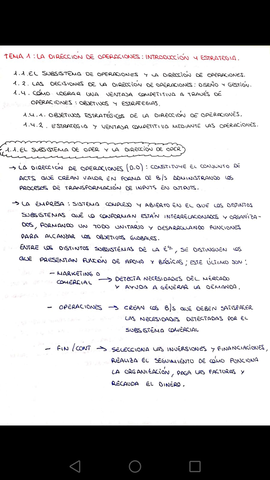 TEMA 1: LA DIRECCIÓN DE OPERACIONES: INTRODUCCIÓN Y ESTRATEGIA.
1.1. EL SUBSISTEMA DE OPERACIONES Y LA DIRECCIÓN DE OPERACIONES.
1.2. LAS DECISIONES DE LA DIRECCIÓN DE OPERACIONES: DISEÑO Y GESTIÓN.
1.4. CÓMO LOGRAR UNA VENTAJA COMPETITIVA A TRAVÉS DE
OPERACIONES: OBJETIVOS Y ESTRATEGIAS.
1.4.1. OBJETIVOS ESTRATÉGICOS DE LA DIRECCIÓN DE OPERACIONES.
1.4.2. ESTRATEGIA Y VENTAJA COMPETITIVA MEDIANTE LAS OPERACIONES.
1.1. EL SUBSISTEMA DE OPER Y LA DIRECCIÓN DE OPER
→ LA DIRECCIÓN DE OPERACIONES (D.O): CONSTITUYE EL CONJUNTO DE
ACTS QUE CREAN VALOR EN FORMA DE B/S ADMINISTRANDO LOS
PROCESOS DE TRANSFORMACIÓN DE INPUTS EN OUTPUTS.
→ LA EMPRESA: SISTEMA COMPLEJO Y ABIERTO EN EL QUE LOS DISTINTOS
SUBSISTEMAS QUE LO CONFORMAN ESTÁN INTERRELACIONADOS Y ORGANIZA-
DOS, FORMANDO UN TODO UNITARIO Y DESARROLLANDO FUNCIONES
PARA ALCANZAR LOS OBJETIVOS GLOBALES.
ENTRE LOS DISTINTOS SUBSISTEMAS DE LA Eª, SE DISTINGUEN LOS
QUE PRESENTAN FUNCIÓN DE APOYO Y BÁSICAS; ESTE ÚLTIMO SON:
- MARKETING O COMERCIAL → DETECTA NECESIDADES DEL MERCADO
Y AYUDA A GENERAR LA DEMANDA.
- OPERACIONES → CREAN LOS B/S QUE DEBEN SATISFACER
LAS NECESIDADES DETECTADAS POR EL
SUBSISTEMA COMERCIAL
- FIN/CONT → SELECCIONA LAS INVERSIONES Y FINANCIACIONES,
REALIZA EL SEGUIMIENTO DE CÓMO FUNCIONA
LA ORGANIZACIÓN, PAGA LAS FACTURAS Y
RECAUDA EL DINERO.